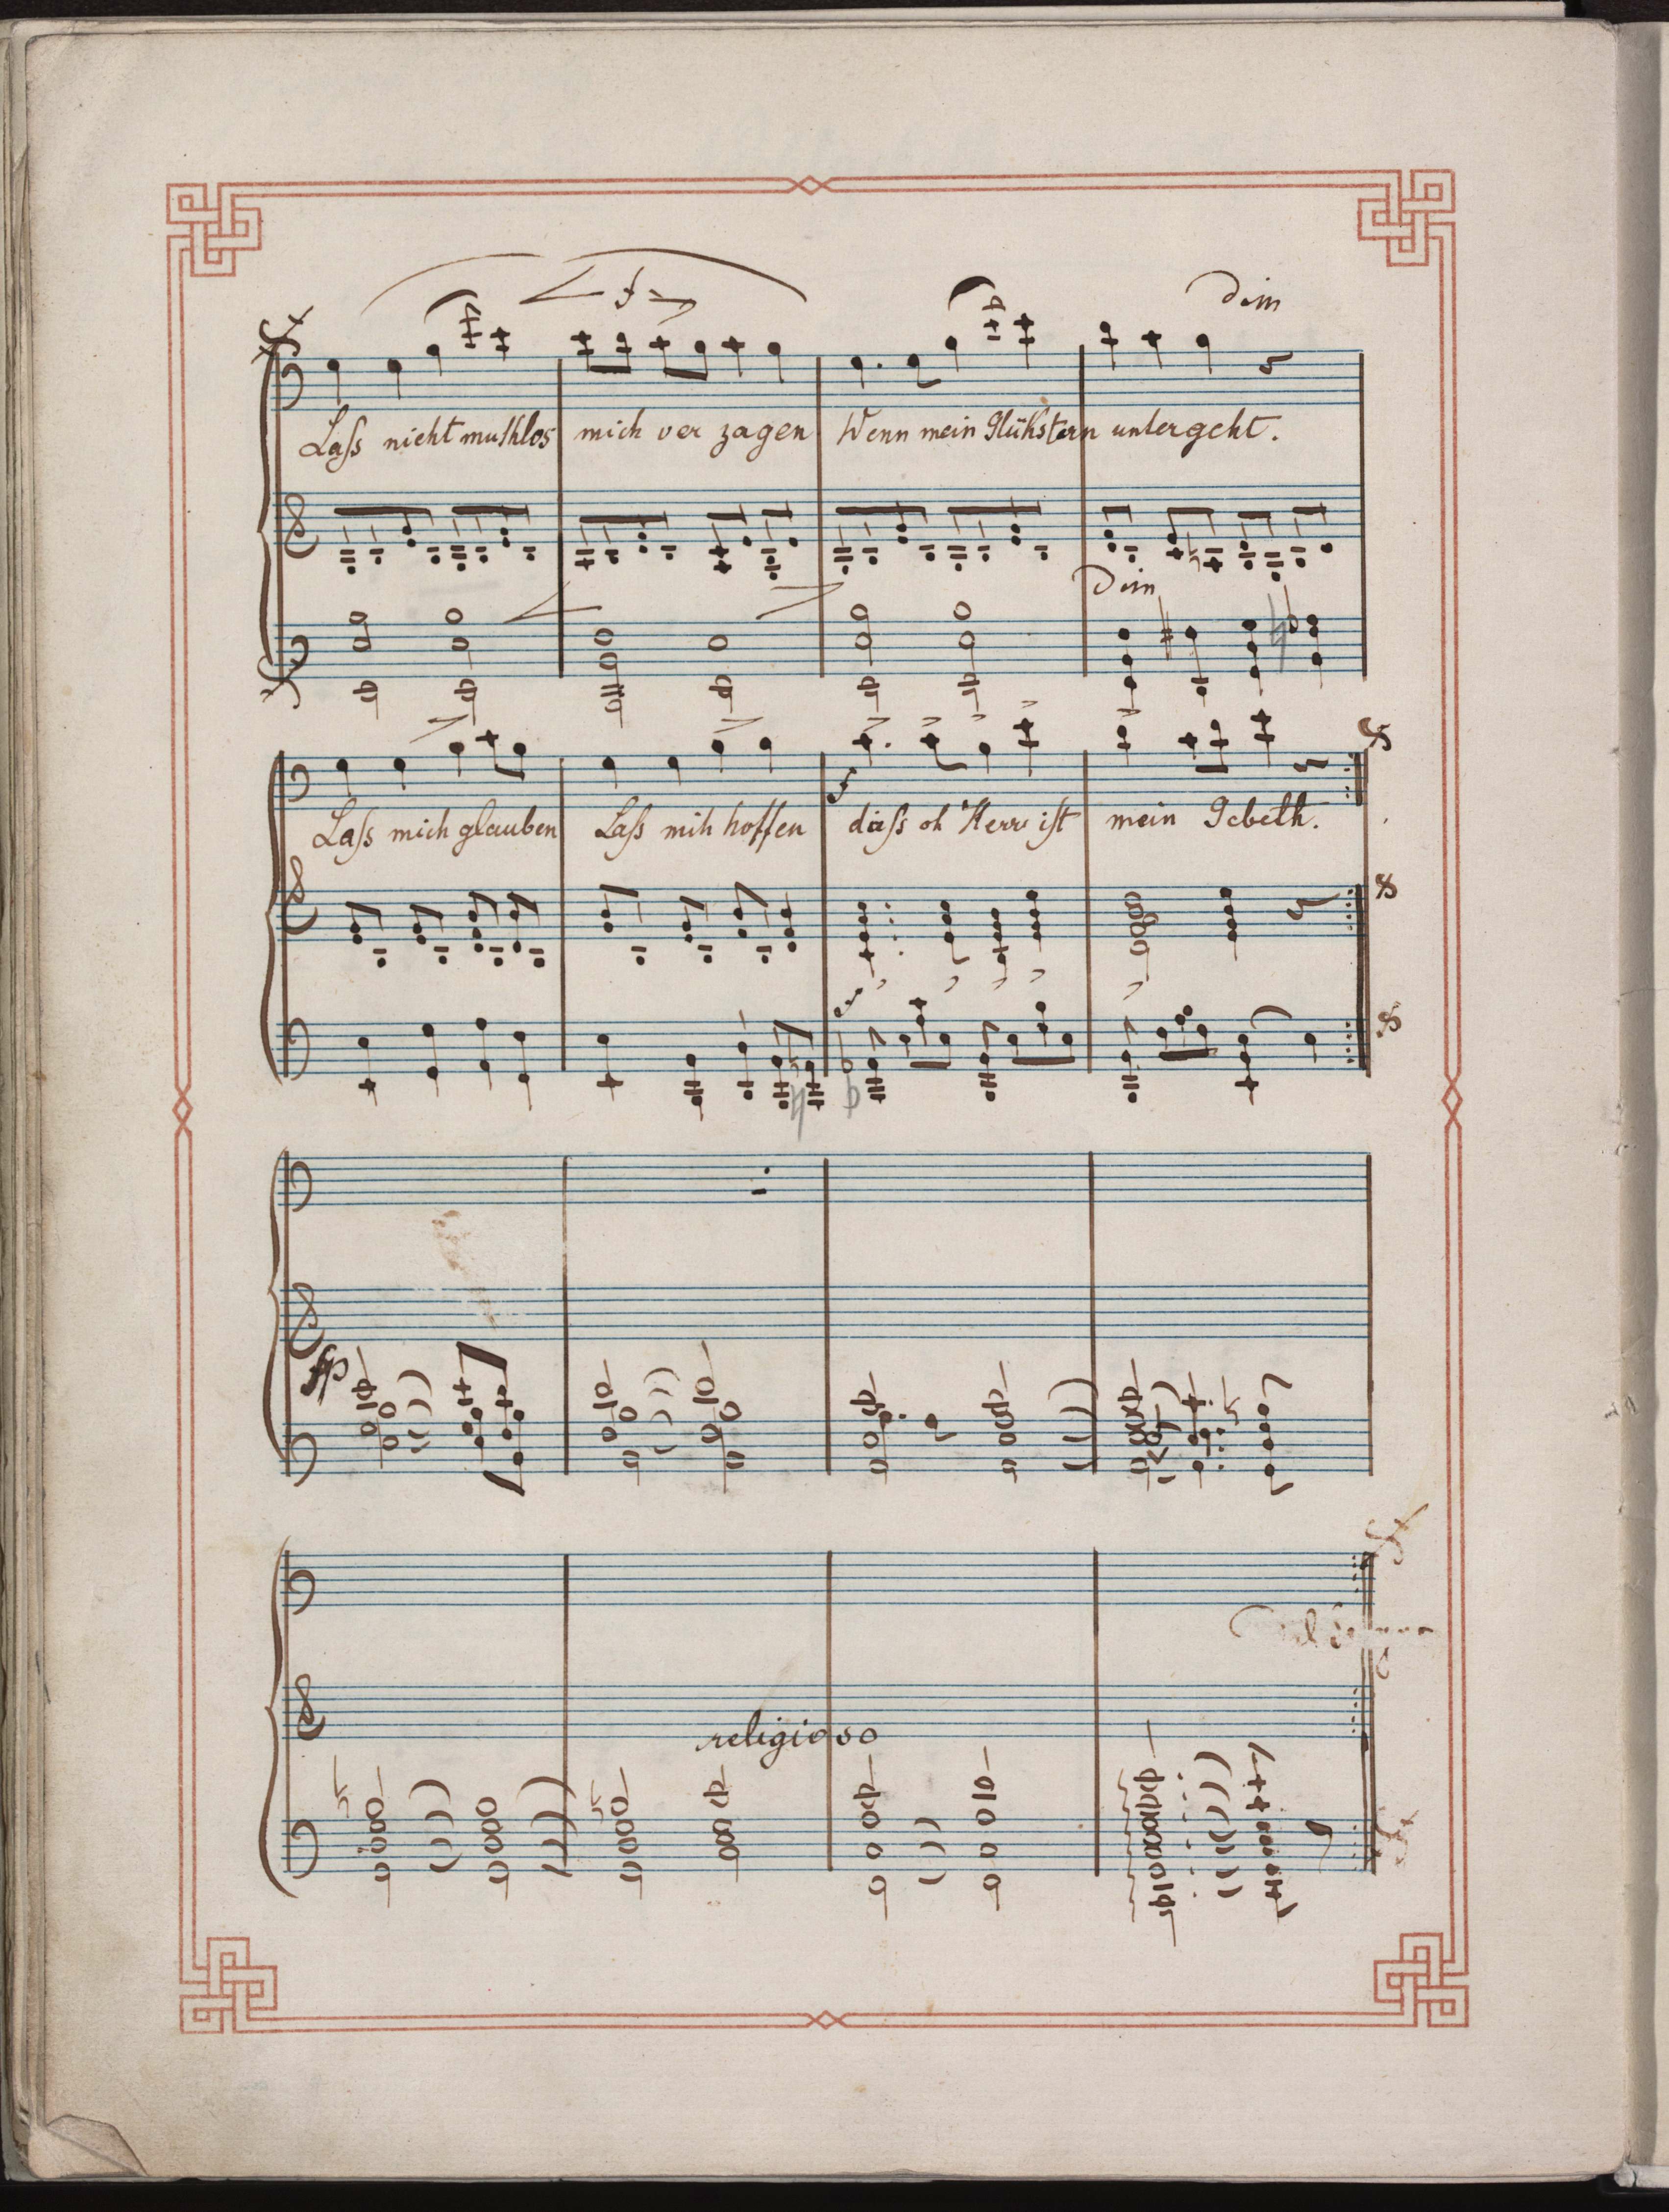 f
dim
Laſs nicht muthlos mich ver zagen Wenn mein Glükstern untergeht.
Dim
f
Laſs mich glauben Laſs mih hoffen daſs oh Herr iſt mein Gebeth.
f
fp
religioso